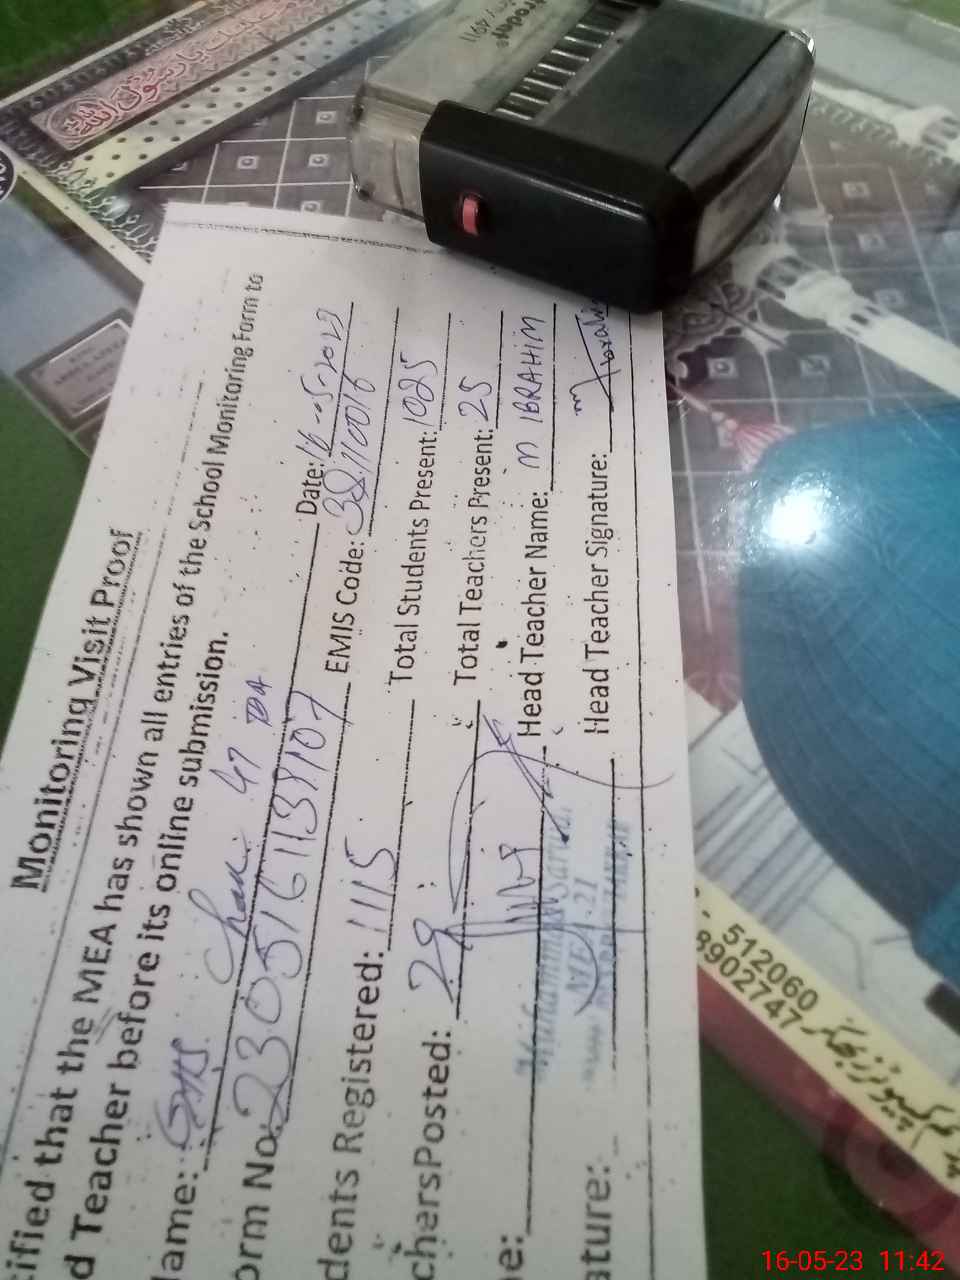 Monitoring Visit Proof
tified that the MEA has shown all entries of the School Monitoring Form to
d Teacher before its online submission.
lame: GHS Chak 47 TDA Date: 16-5-2023
orm No. 2305161138107 EMIS Code: 38110016
dents Registered: 1115 Total Students Present: 1025
chersPosted: 29 Total Teachers Present: 25
e: Head Teacher Name: M IBRAHIM
ature: Head Teacher Signature:
Muhammad Sarwar
MEA-21
trodat
4911
يا رسول الله
512060
8902747
کمپیوٹرز بھکر
16-05-23 11:42